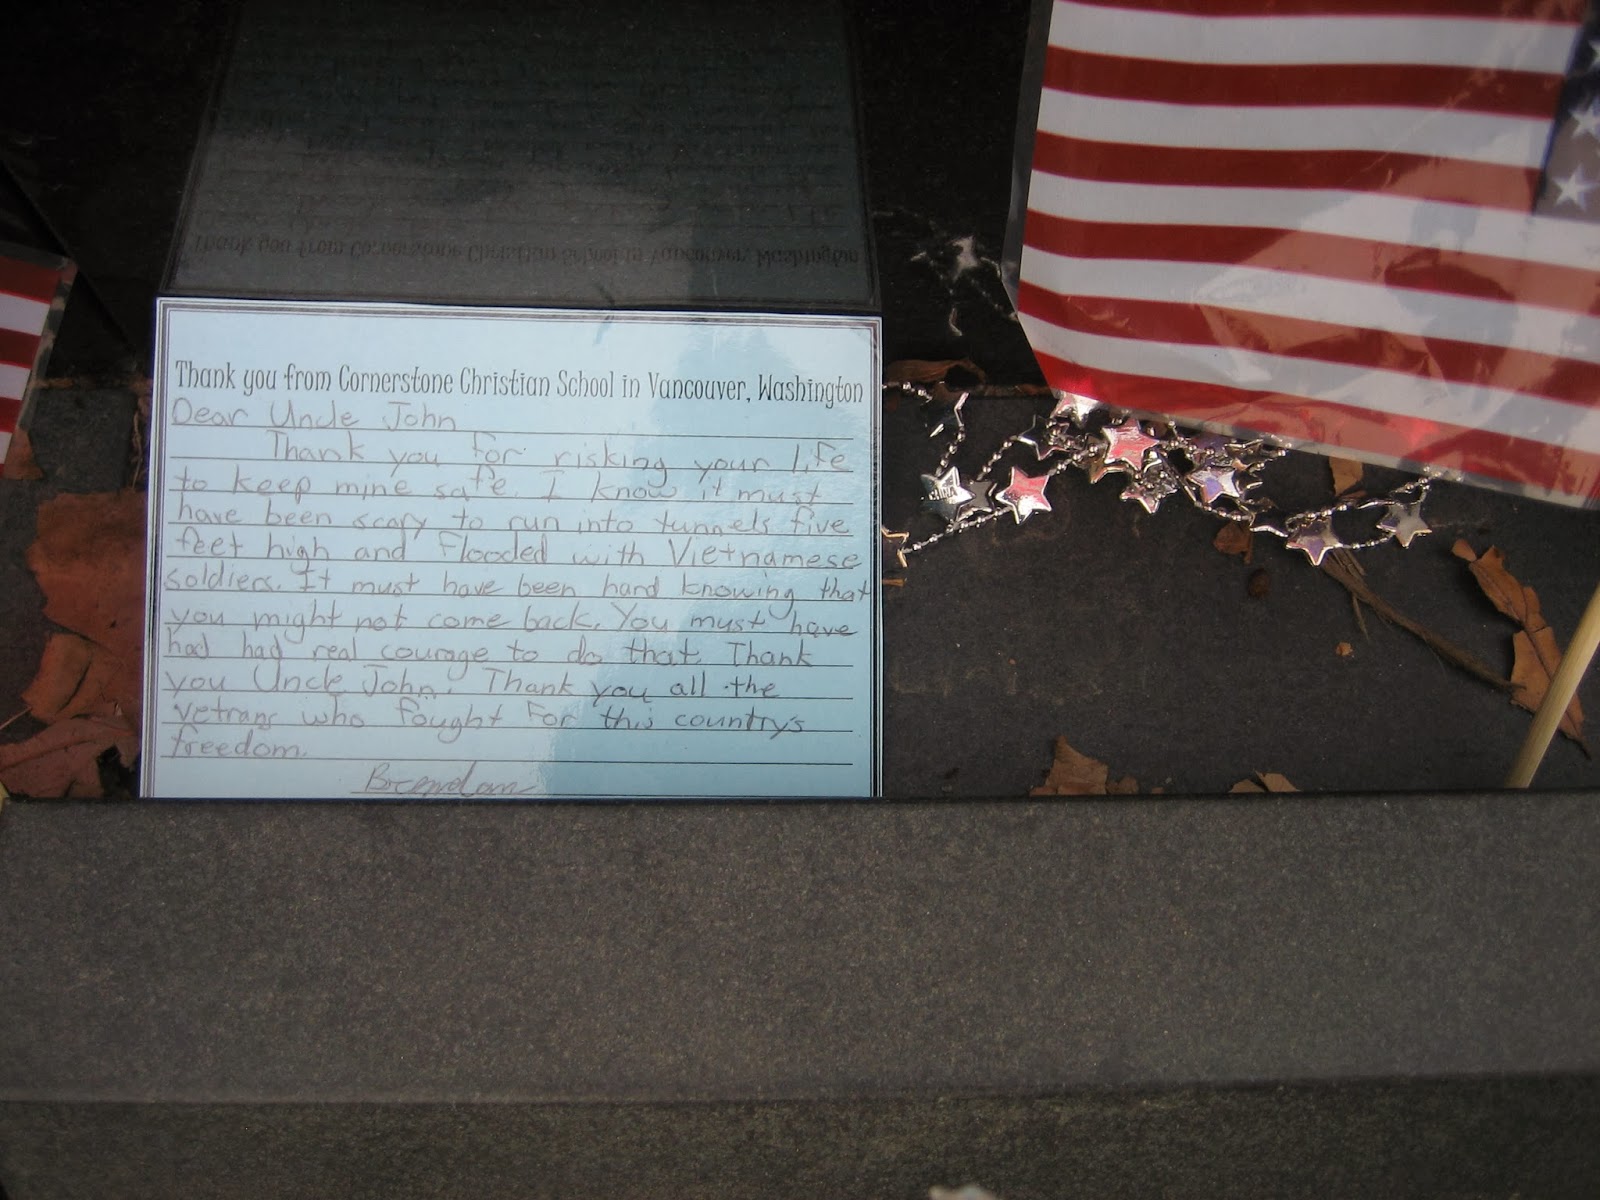 Thank you from Cornerstone Christian School in Vancouver, Washington
Dear Uncle John
Thank you for risking your life
to keep mine safe I know it must
have been scary to run into tunnels five
feet high and flooded with Vietnamese
soldiers. It must have been hard knowing that
you might not come back. You must have
had had real courage to do that. Thank
you Uncle John. Thank you all the
vetrans who fought for this country's
freedom.
Brendan
CHINA